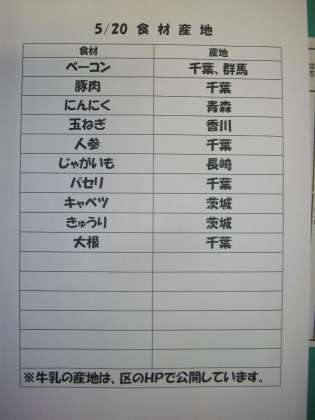 5/20 食材産地
食材 産地
ベーコン 千葉、群馬
豚肉 千葉
にんにく 青森
玉ねぎ 香川
人参 千葉
じゃがいも 長崎
パセリ 千葉
キャベツ 茨城
きゅうり 茨城
大根 千葉
※牛乳の産地は、区のHPで公開しています。